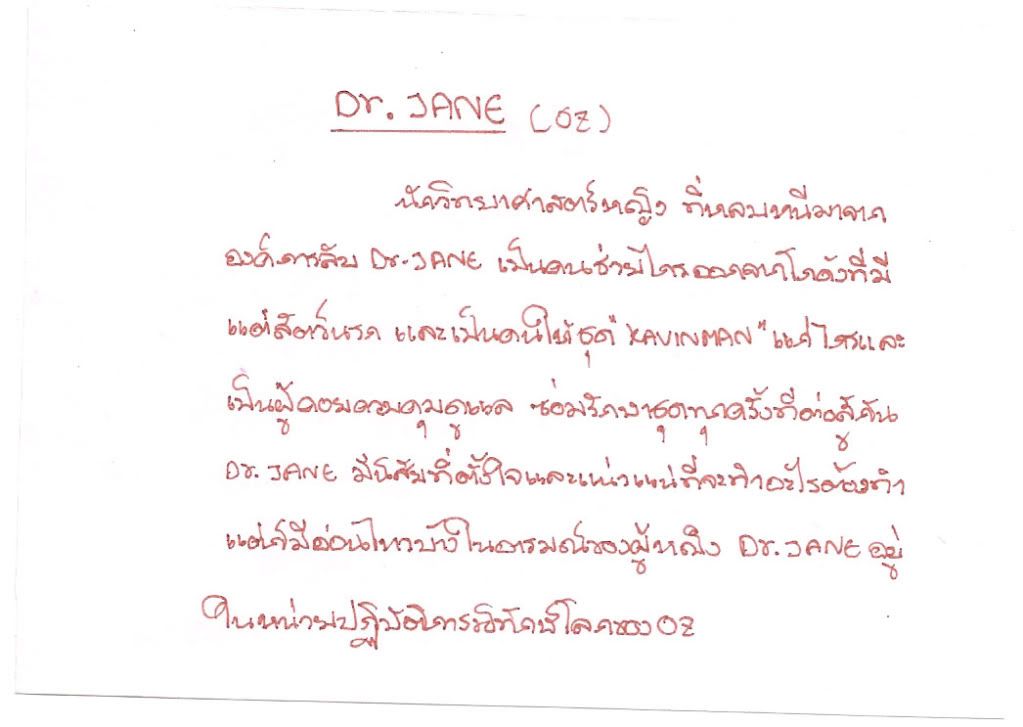 Dr. JANE (OZ)
นักวิทยาศาสตร์หญิง ที่หลบหนีมาจาก
องค์การลับ Dr. JANE เป็นคนช่วยไกรออกจากโกดังที่มี
แต่สัตว์นรก และเป็นคนให้ชุด "KAVINMAN" แก่ไกรและ
เป็นผู้คอยควบคุมดูแล ซ่อมรักษาชุดทุกครั้งที่ต่อสู้กัน
Dr. JANE มีนิสัยที่ตั้งใจและแน่วแน่ที่จะทำอะไรต้องทำ
แต่ก็มีอ่อนไหวบ้างในอารมณ์ของผู้หญิง Dr. JANE อยู่
ในหน่วยปฏิบัติการพิทักษ์โลกของ OZ